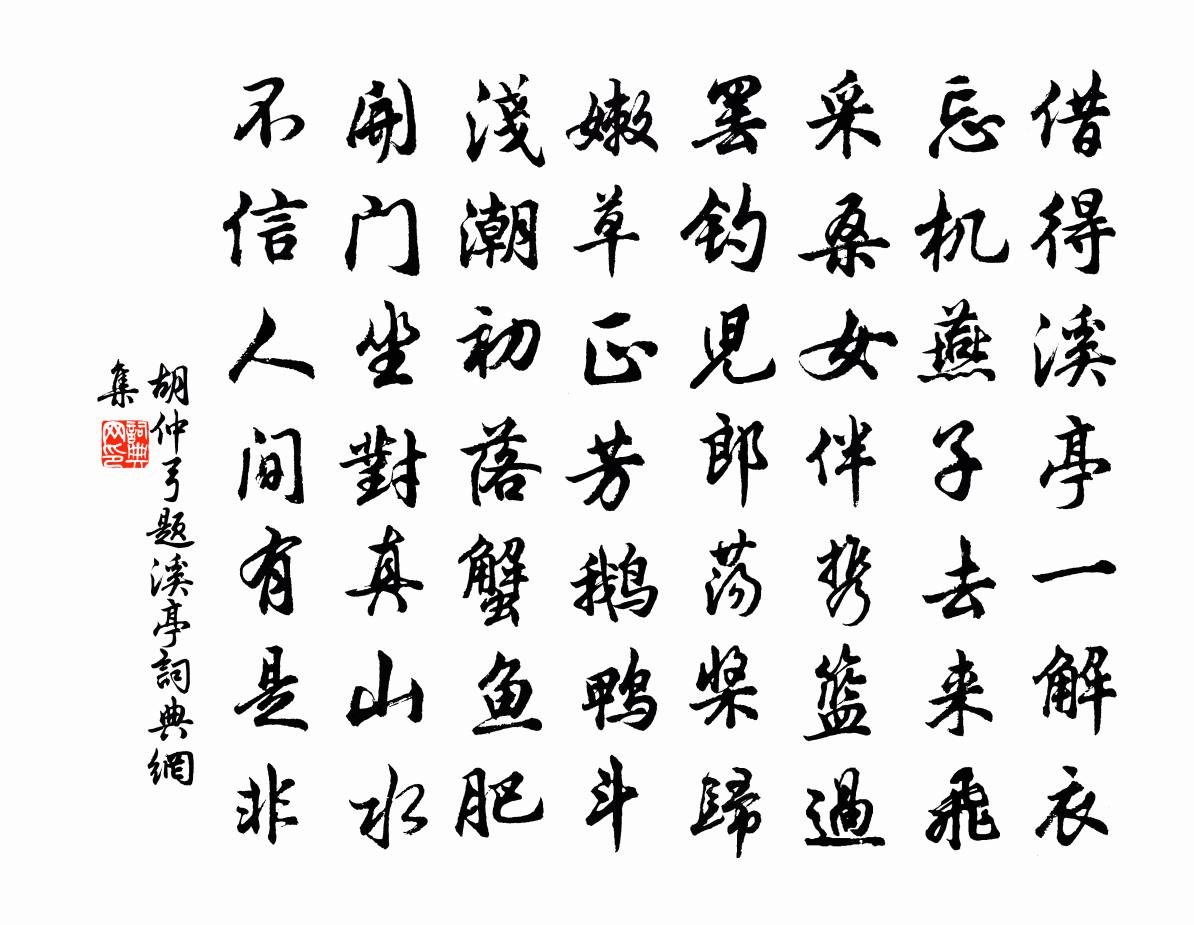 借得溪亭一解衣
忘机燕子去来飛
采桑女伴携籃過
罢釣児郎荡桨歸
嫩草正芳鹅鴨斗
淺潮初落蟹鱼肥
開门坐對真山水
不信人间有是非
胡仲弓题溪亭詞典網
集
詞典
网印